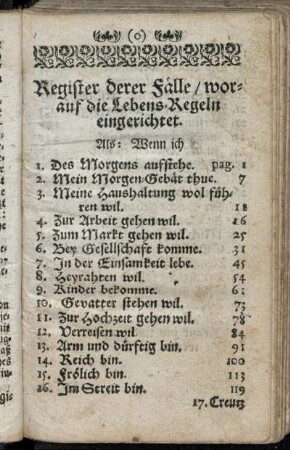 (o)
Register derer Fälle/ wor-
auf die Lebens-Regeln
eingerichtet.
Als: Wenn ich
1. Des Morgens aufstehe. pag. 1
2. Mein Morgen-Gebät thue. 7
3. Meine Haushaltung wol füh-
ren wil. 11
4. Zur Arbeit gehen wil. 16
5. Zum Markt gehen wil. 25
6. Bey Gesellschaft komme. 31
7. In der Einsamkeit lebe. 45
8. Heyrahten wil. 54
9. Kinder bekomme.
10. Gevatter stehen wil. 73
11. Zur Hochzeit gehen wil. 78
12. Verreisen wil 84
13. Arm und dürftig bin. 91
14. Reich bin. 100
15. Frölich bin. 113
16. Im Streit bin. 119
17. Creutz